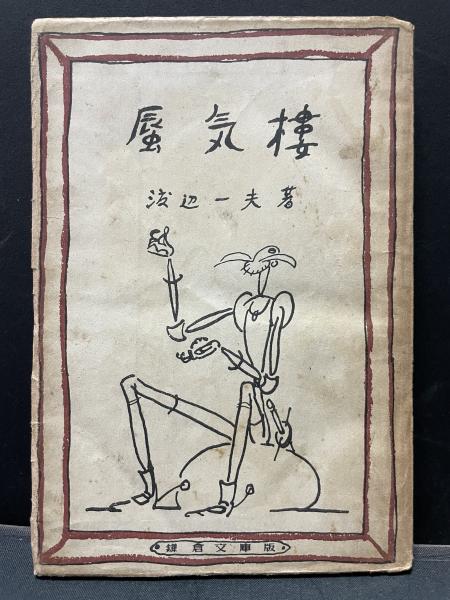 蜃気樓
渡辺一夫著
鎌倉文庫版